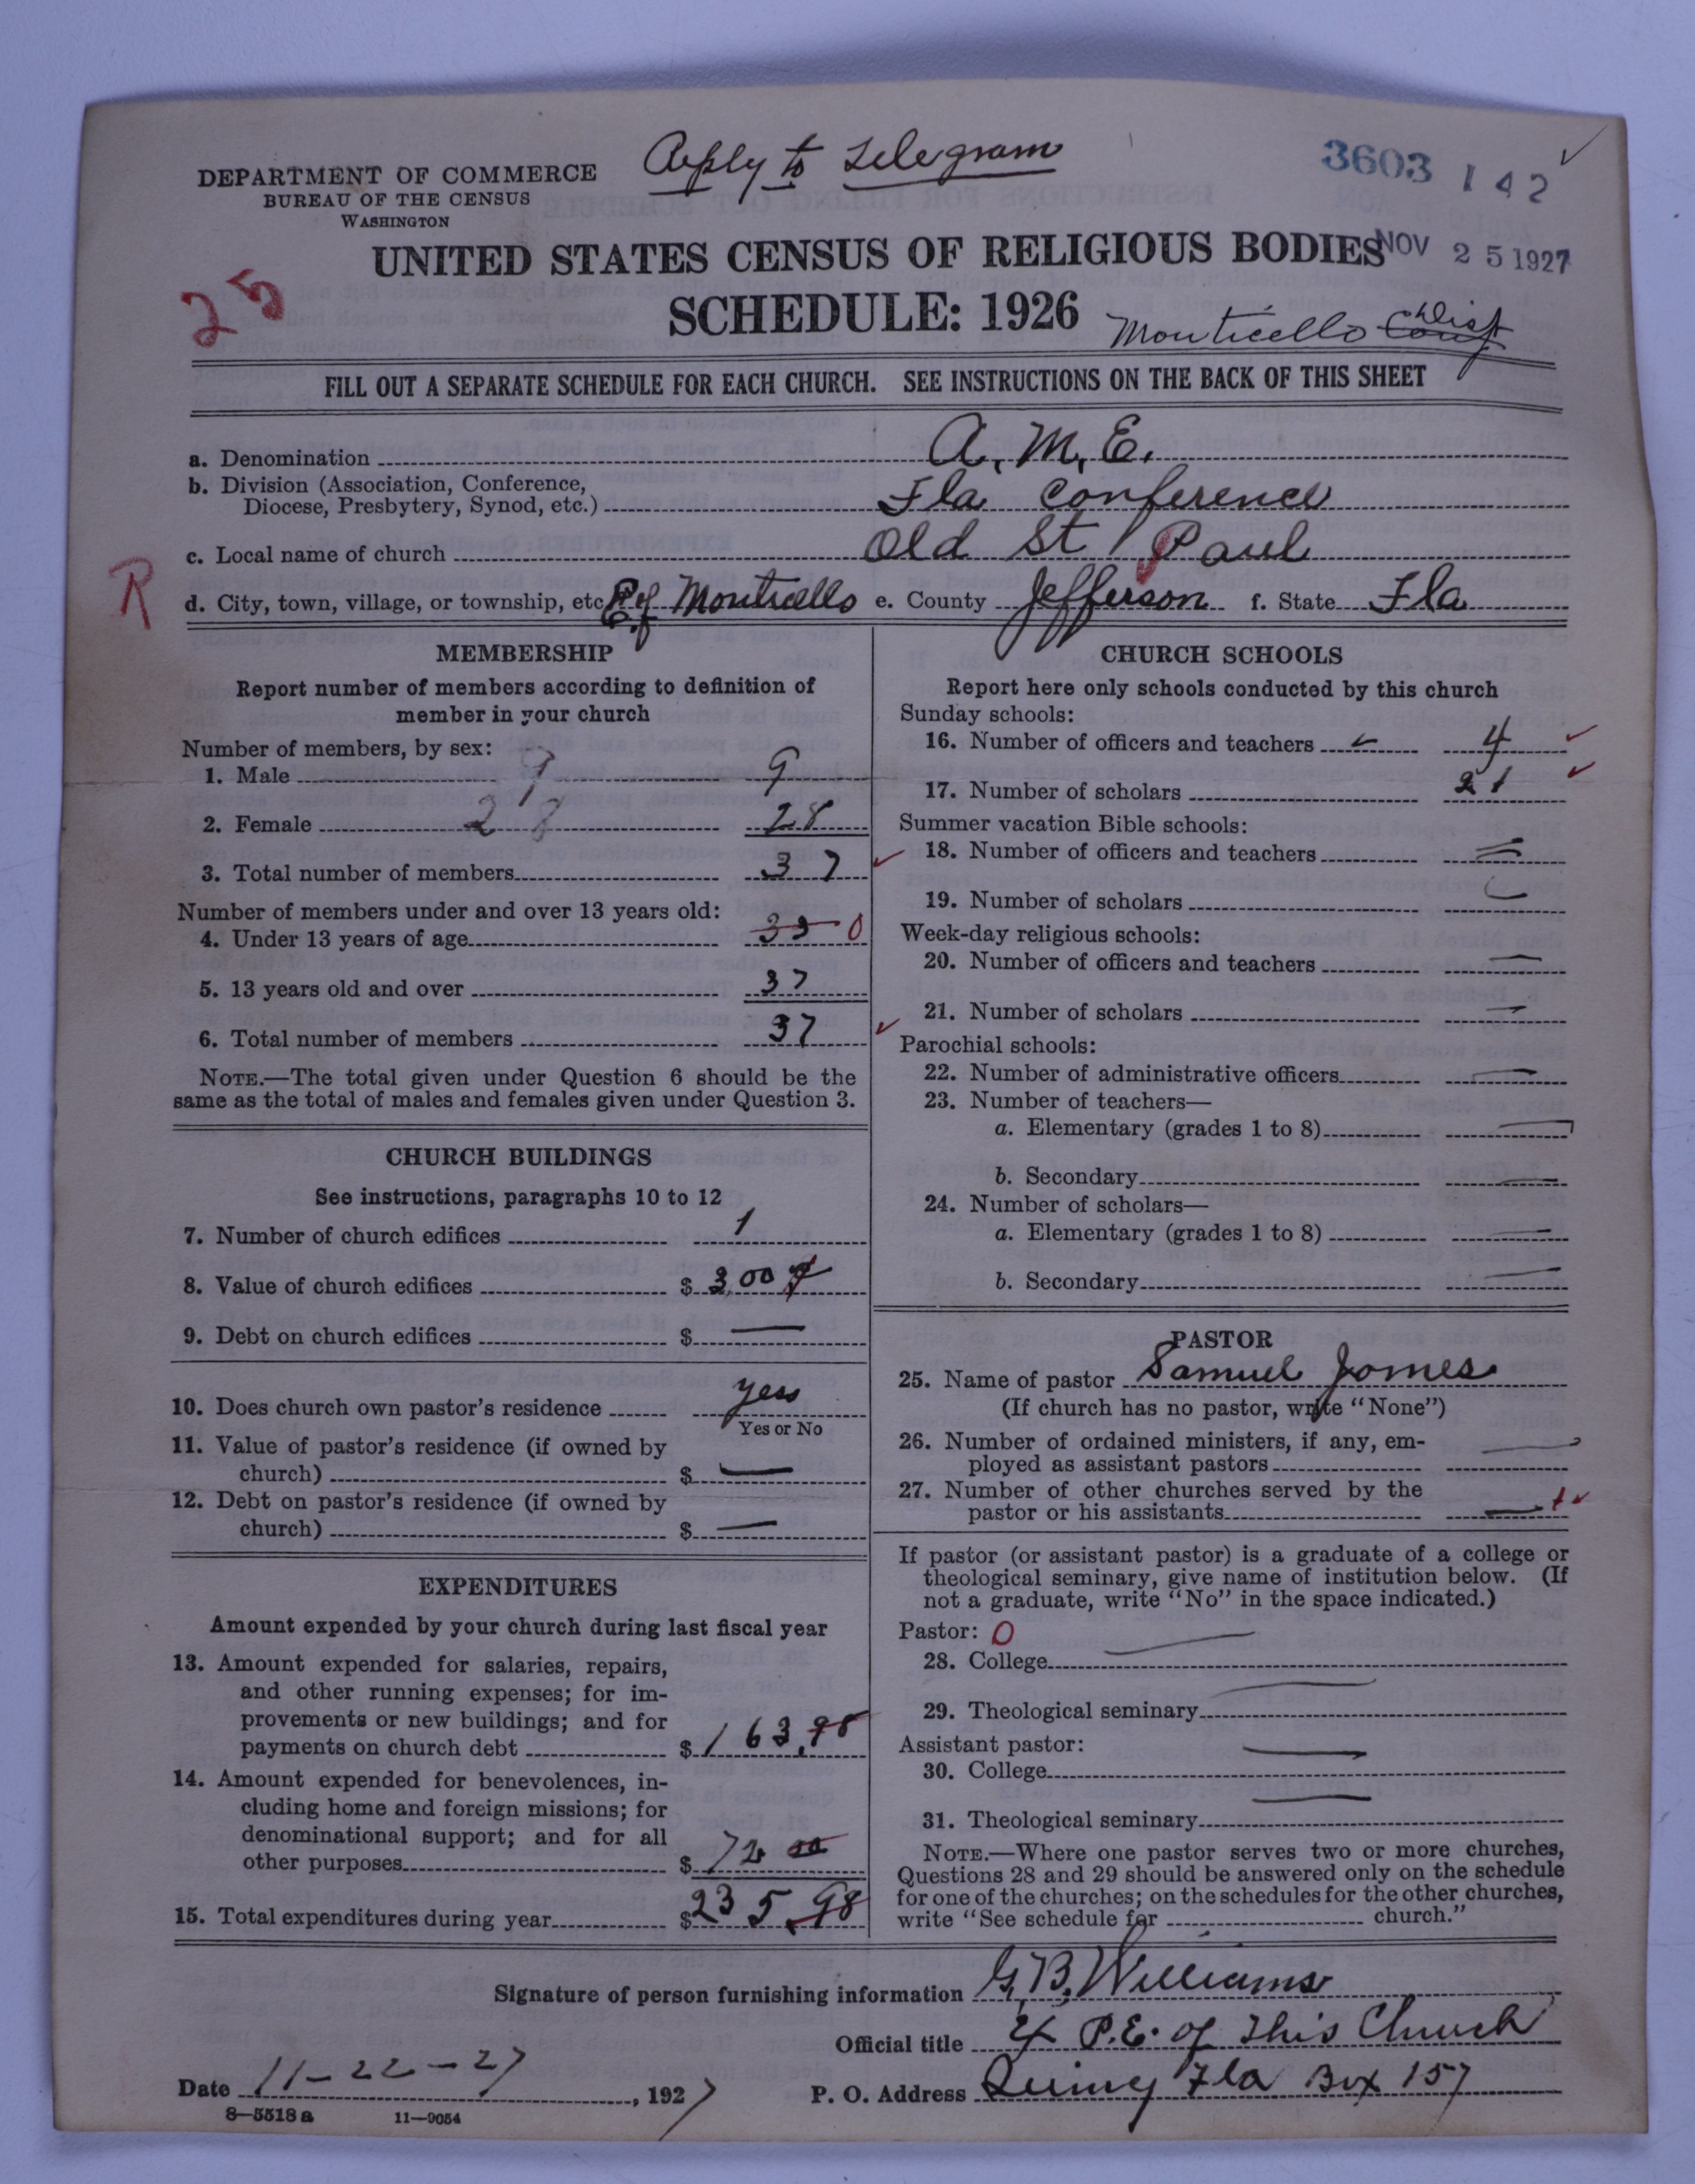 Reply to telegram
3603 142
DEPARTMENT OF COMMERCE
BUREAU OF THE CENSUS
WASHINGTON
UNITED STATES CENSUS OF RELIGIOUS BODIES
NOV 25 1927
25
SCHEDULE: 1926
Monticello Dist
FILL OUT A SEPARATE SCHEDULE FOR EACH CHURCH. SEE INSTRUCTIONS ON THE BACK OF THIS SHEET
a. Denomination A. M. E.
b. Division (Association, Conference,
Diocese, Presbytery, Synod, etc.) Fla Conference
c. Local name of church Old St Paul
R
d. City, town, village, or township, etc. E of Monticello e. County Jefferson f. State Fla
MEMBERSHIP
Report number of members according to definition of
member in your church
Number of members, by sex:
1. Male 9 9
2. Female 28 28
3. Total number of members 37
Number of members under and over 13 years old:
4. Under 13 years of age 0
5. 13 years old and over 37
6. Total number of members 37
NOTE.—The total given under Question 6 should be the
same as the total of males and females given under Question 3.
CHURCH BUILDINGS
See instructions, paragraphs 10 to 12
7. Number of church edifices 1
8. Value of church edifices $ 300
9. Debt on church edifices $ —
10. Does church own pastor's residence yess
Yes or No
11. Value of pastor's residence (if owned by
church) $ —
12. Debt on pastor's residence (if owned by
church) $ —
EXPENDITURES
Amount expended by your church during last fiscal year
13. Amount expended for salaries, repairs,
and other running expenses; for im-
provements or new buildings; and for
payments on church debt $ 163.98
14. Amount expended for benevolences, in-
cluding home and foreign missions; for
denominational support; and for all
other purposes $ 72 00
15. Total expenditures during year $ 235.98
CHURCH SCHOOLS
Report here only schools conducted by this church
Sunday schools:
16. Number of officers and teachers 4
17. Number of scholars 21
Summer vacation Bible schools:
18. Number of officers and teachers —
19. Number of scholars
Week-day religious schools:
20. Number of officers and teachers —
21. Number of scholars —
Parochial schools:
22. Number of administrative officers —
23. Number of teachers—
a. Elementary (grades 1 to 8) —
b. Secondary —
24. Number of scholars—
a. Elementary (grades 1 to 8) —
b. Secondary —
PASTOR
25. Name of pastor Samuel Jomes
(If church has no pastor, write "None")
26. Number of ordained ministers, if any, em-
ployed as assistant pastors —
27. Number of other churches served by the
pastor or his assistants —
If pastor (or assistant pastor) is a graduate of a college or
theological seminary, give name of institution below. (If
not a graduate, write "No" in the space indicated.)
Pastor: 0
28. College —
29. Theological seminary —
Assistant pastor:
30. College —
31. Theological seminary —
NOTE.—Where one pastor serves two or more churches,
Questions 28 and 29 should be answered only on the schedule
for one of the churches; on the schedules for the other churches,
write "See schedule for church."
Signature of person furnishing information G. B. Williams
Official title P.E. of This Church
Date 11-22-27, 1927 P. O. Address Quincy Fla Box 157
8—5518 a 11—9054